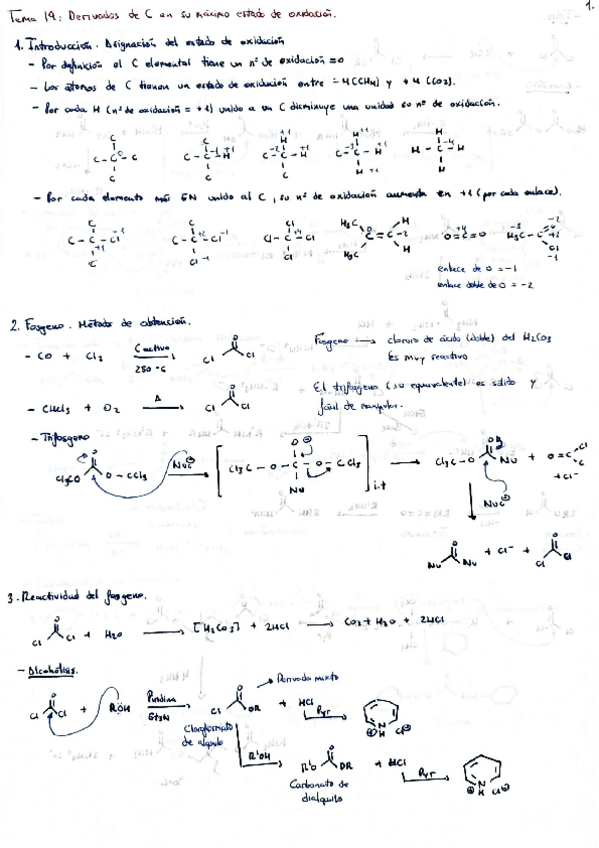 1.
Tema 19: Derivados de C en su máximo estado de oxidación.
1. Introducción. Asignación del estado de oxidación
- Por definición el C elemental tiene un nº de oxidación = 0
- Los átomos de C tienen un estado de oxidación entre -4 (CH4) y +4 (CO2).
- Por cada H (nº de oxidación = +1) unido a un C disminuye una unidad su nº de oxidación.
- Por cada elemento más EN unido al C, su nº de oxidación aumenta en +1 (por cada enlace).
enlace de O = -1
enlace doble de O = -2
2. Fosgeno. Método de obtención.
- CO + Cl2 C activo 250 ºC
Fosgeno → cloruro de ácido (doble) del H2CO3
Es muy reactivo
El trifosgeno (su equivalente) es sólido y
fácil de manipular.
- CHCl3 + O2 Δ
- Trifosgeno
Cl3CO O - CCl3 Nu⊖ Cl3C - O - C - O - CCl3 Nu i.t Cl3C - O Nu + O=C + Cl-
Nu⊖
Nu Nu + Cl- + Cl Cl
3. Reactividad del fosgeno.
Cl Cl + H2O → [H2CO3] + 2HCl → CO2 + H2O + 2HCl
- Alcoholisis.
Derivado mixto
Cl Cl + RÖH Piridina Et3N Cl OR + HCl Pyr
Cloroformiato
de alquilo
R'OH R'O OR + HCl Pyr
Carbonato de
dialquilo